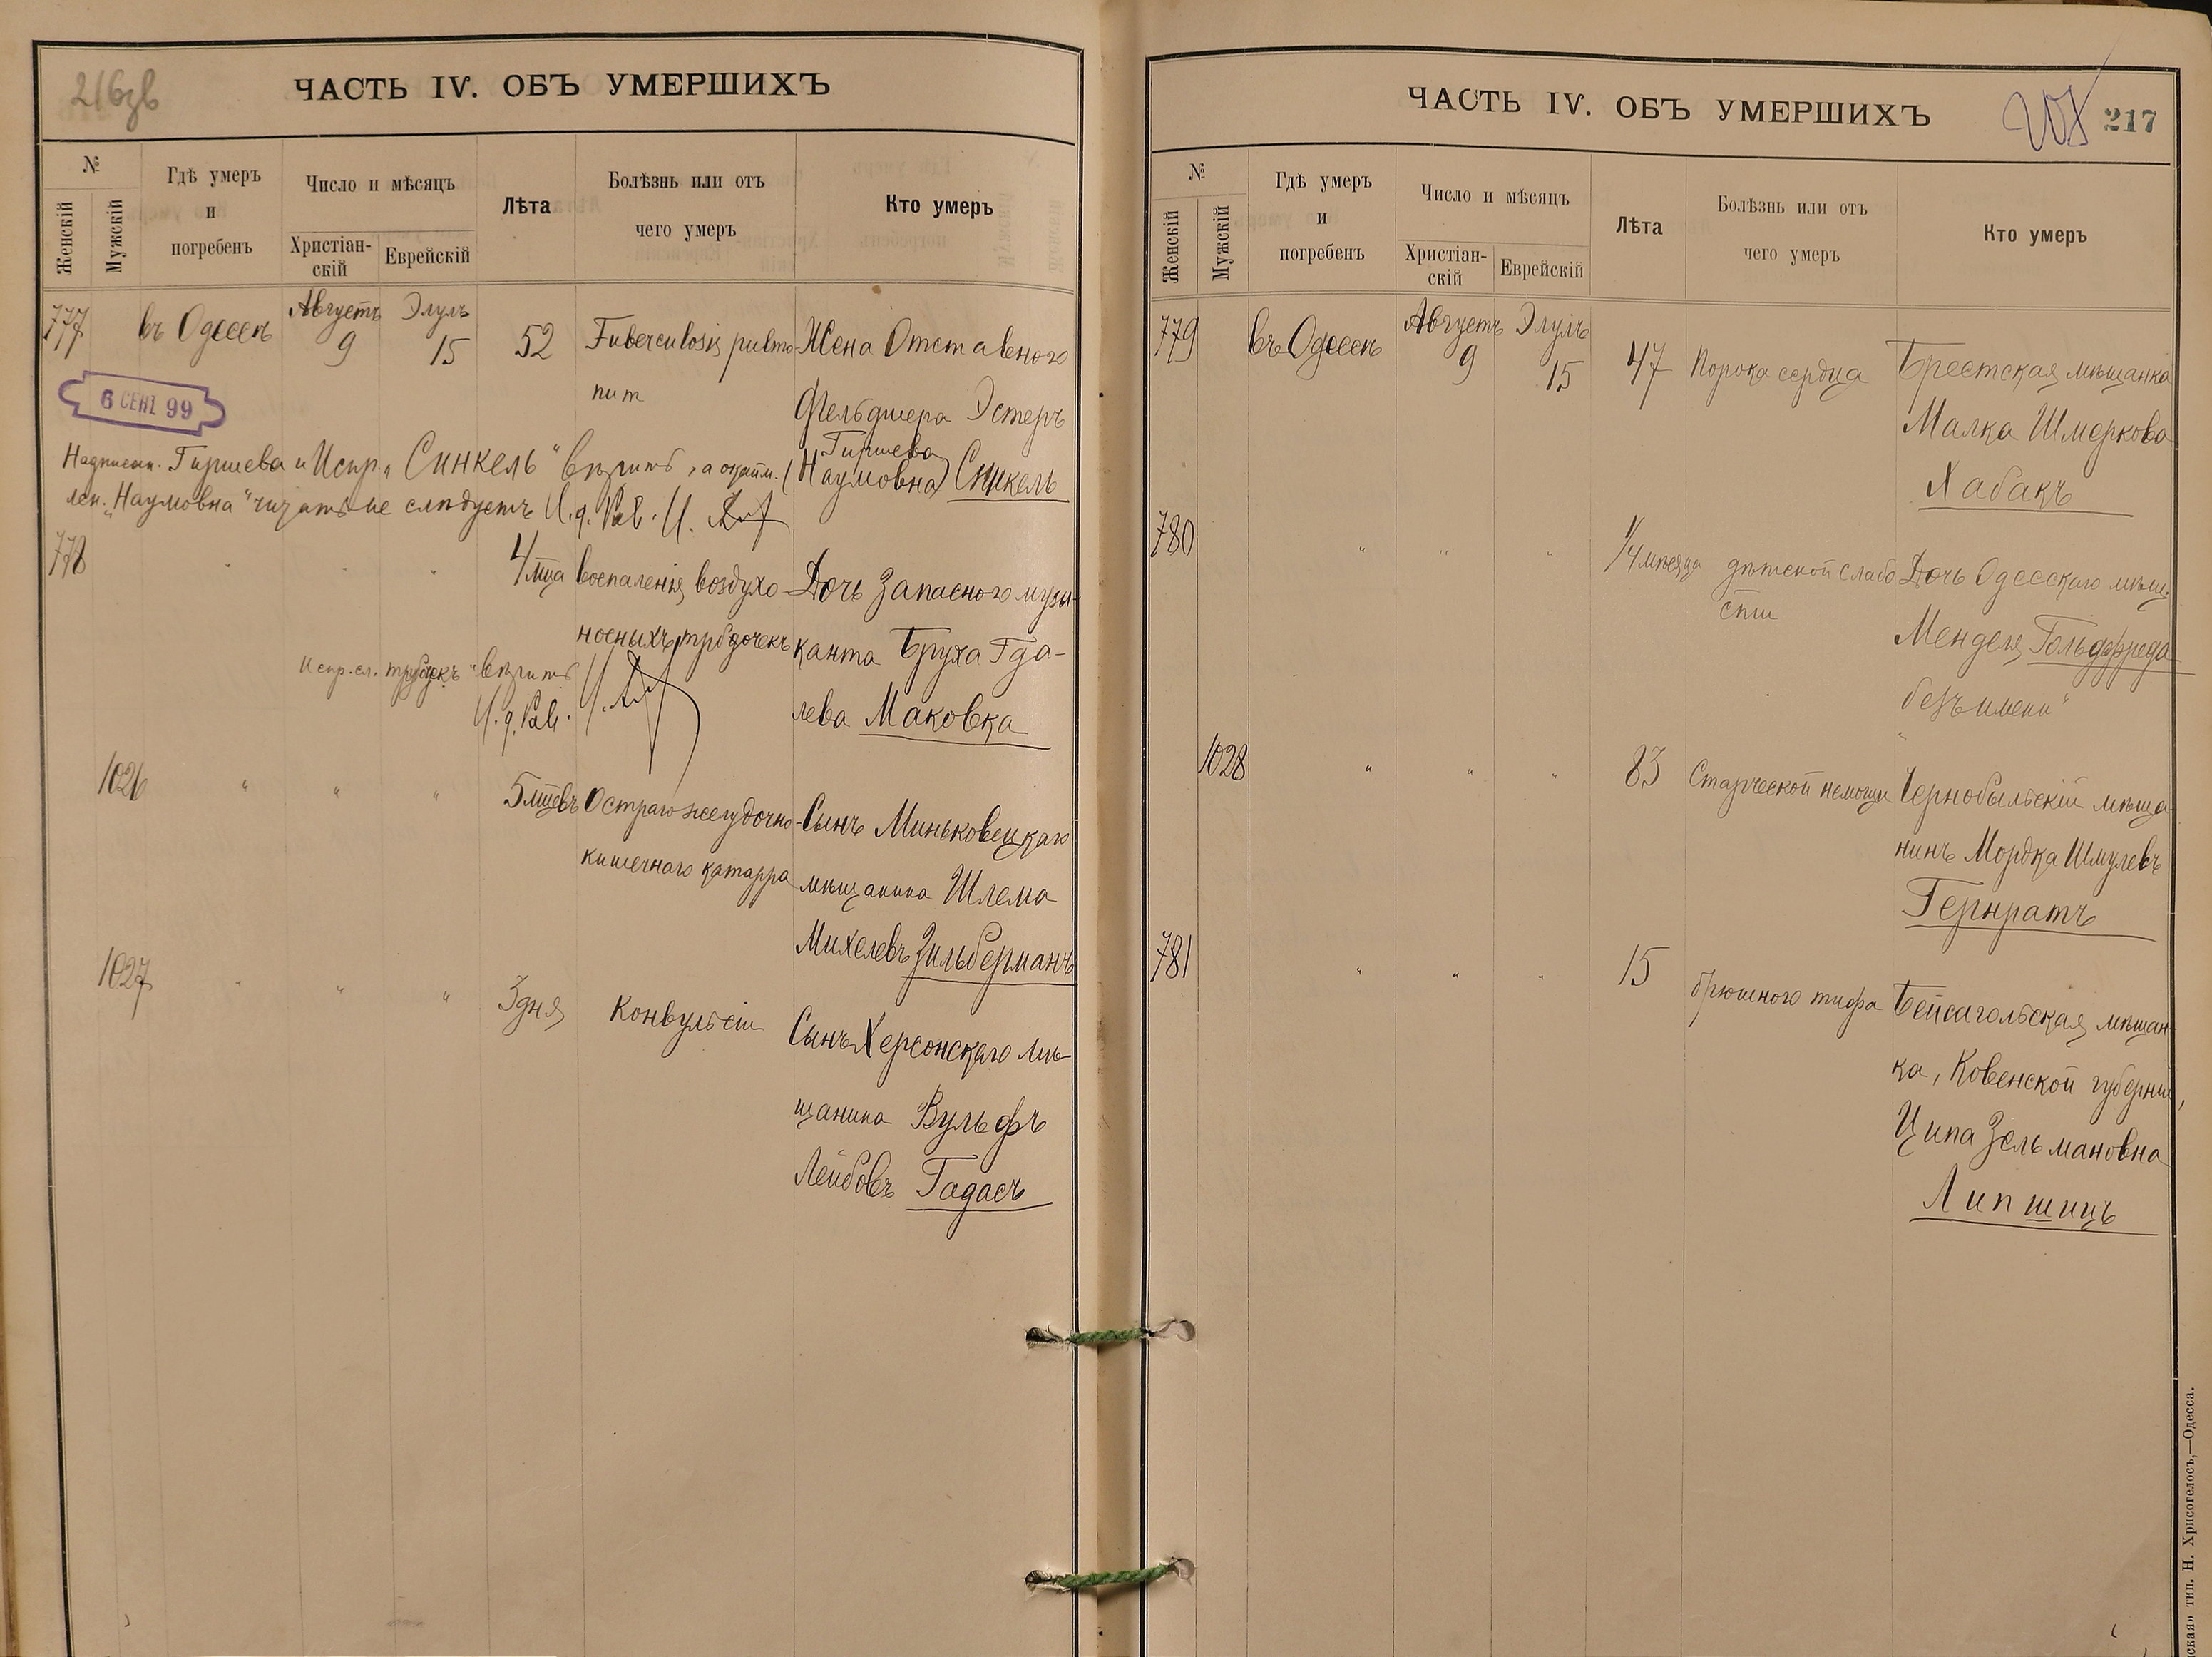 216зв
ЧАСТЬ IV. ОБЪ УМЕРШИХЪ
№
Женскій
Мужскій
Гдѣ умеръ
и
погребенъ
Число и мѣсяцъ
Христіан-
скій
Еврейскій
Лѣта
Болѣзнь или отъ
чего умеръ
Кто умеръ
777
въ Одессѣ
Августъ
9
Элулъ
15
52
Tuberculosis pulmo-
num
Жена Отставного
Фельдшера Эстеръ
Гиршева
(Наумовна) Синкель
6 СЕН 99
Надписан. Гиршева и Испр. „Синкель" вѣрить, а
лен. „Наумовна" читать не слѣдуетъ И. д. Рав. И.
778
" " "
4 мца
воспаленія воздухо-
носныхъ трубочекъ
Дочь Запасного музы-
канта Бруха Гда-
лева Маковка
Испр. сл. трубочекъ" вѣрить
И. д. Рав.
1026
" " "
5 мцевъ
Остраго желудочно-
кишечнаго катарра
Сынъ Миньковецкаго
мѣщанина Шлема
Михелевъ Зильберманъ
1027
" " "
3 дня
Конвульсіи
Сынъ Херсонскаго мѣ-
щанина Вульфъ
Лейбовъ Гадасъ
ЧАСТЬ IV. ОБЪ УМЕРШИХЪ
217
№
Женскій
Мужскій
Гдѣ умеръ
и
погребенъ
Число и мѣсяцъ
Христіан-
скій
Еврейскій
Лѣта
Болѣзнь или отъ
чего умеръ
Кто умеръ
779
въ Одессѣ
Августъ
9
Элулъ
15
47
Порока сердца
Брестская мѣщанка
Малка Шмеркова
Хабакъ
780
" " "
1/4 мѣсяца
дѣтской слабо
сти
Дочь Одесскаго мѣщ.
Менделя Гольдфреда
„безъ имени"
1028
" " "
83
Старческой немощи
Чернобыльскій мѣща-
нинъ Мордка Шмулевъ
Гернратъ
781
" " "
15
брюшного тифа
Бейсагольская мѣщан-
ка, Ковенской губерніи,
Ципа Зельмановна
Липшицъ
ская» тип. Н. Хрисогелосъ,—Одесса.